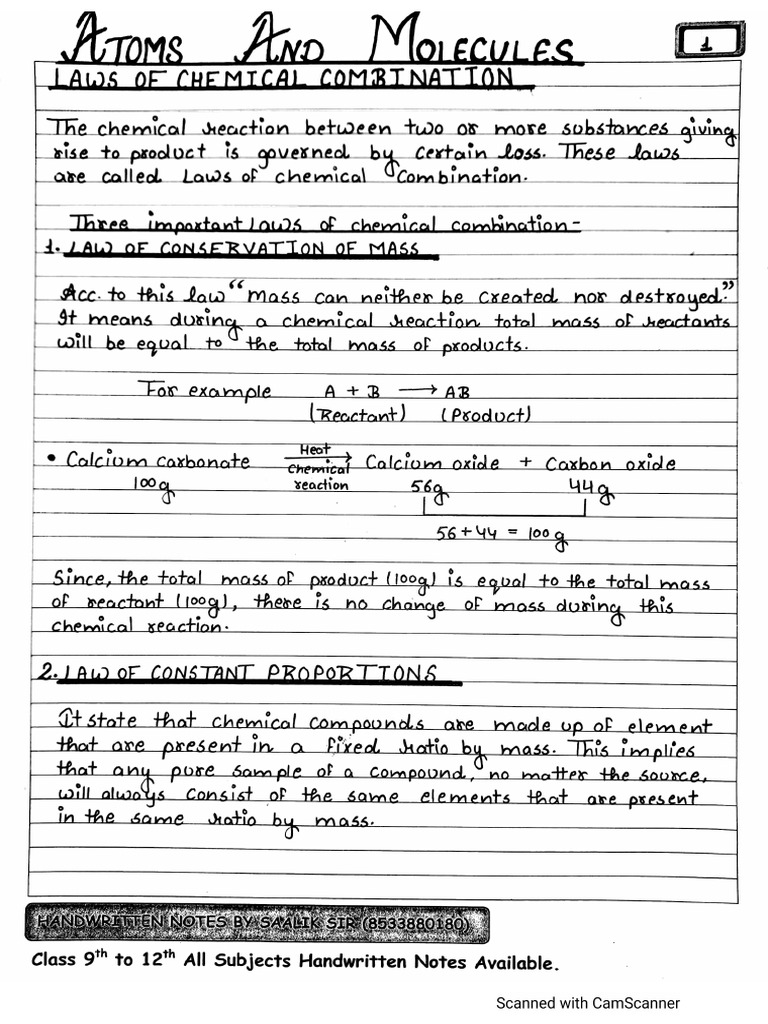 ATOMS AND MOLECULES
1
LAWS OF CHEMICAL COMBINATION
The chemical reaction between two or more substances giving
rise to product is governed by certain loss. These laws
are called Laws of chemical Combination.
Three important laws of chemical combination-
1. LAW OF CONSERVATION OF MASS
Acc. to this law "mass can neither be created nor destroyed."
It means during a chemical reaction total mass of reactants
will be equal to the total mass of products.
For example A + B → AB
(Reactant) (Product)
• Calcium carbonate Heat Chemical reaction → Calcium oxide + Carbon oxide
100g 56g 44g
56+44 = 100g
Since, the total mass of product (100g) is equal to the total mass
of reactant (100g), there is no change of mass during this
chemical reaction.
2. LAW OF CONSTANT PROPORTIONS
It state that chemical compounds are made up of element
that are present in a fixed ratio by mass. This implies
that any pure sample of a compound, no matter the source,
will always consist of the same elements that are present
in the same ratio by mass.
HANDWRITTEN NOTES BY SAALIK SIR (8533880180)
Class 9th to 12th All Subjects Handwritten Notes Available.
Scanned with CamScanner